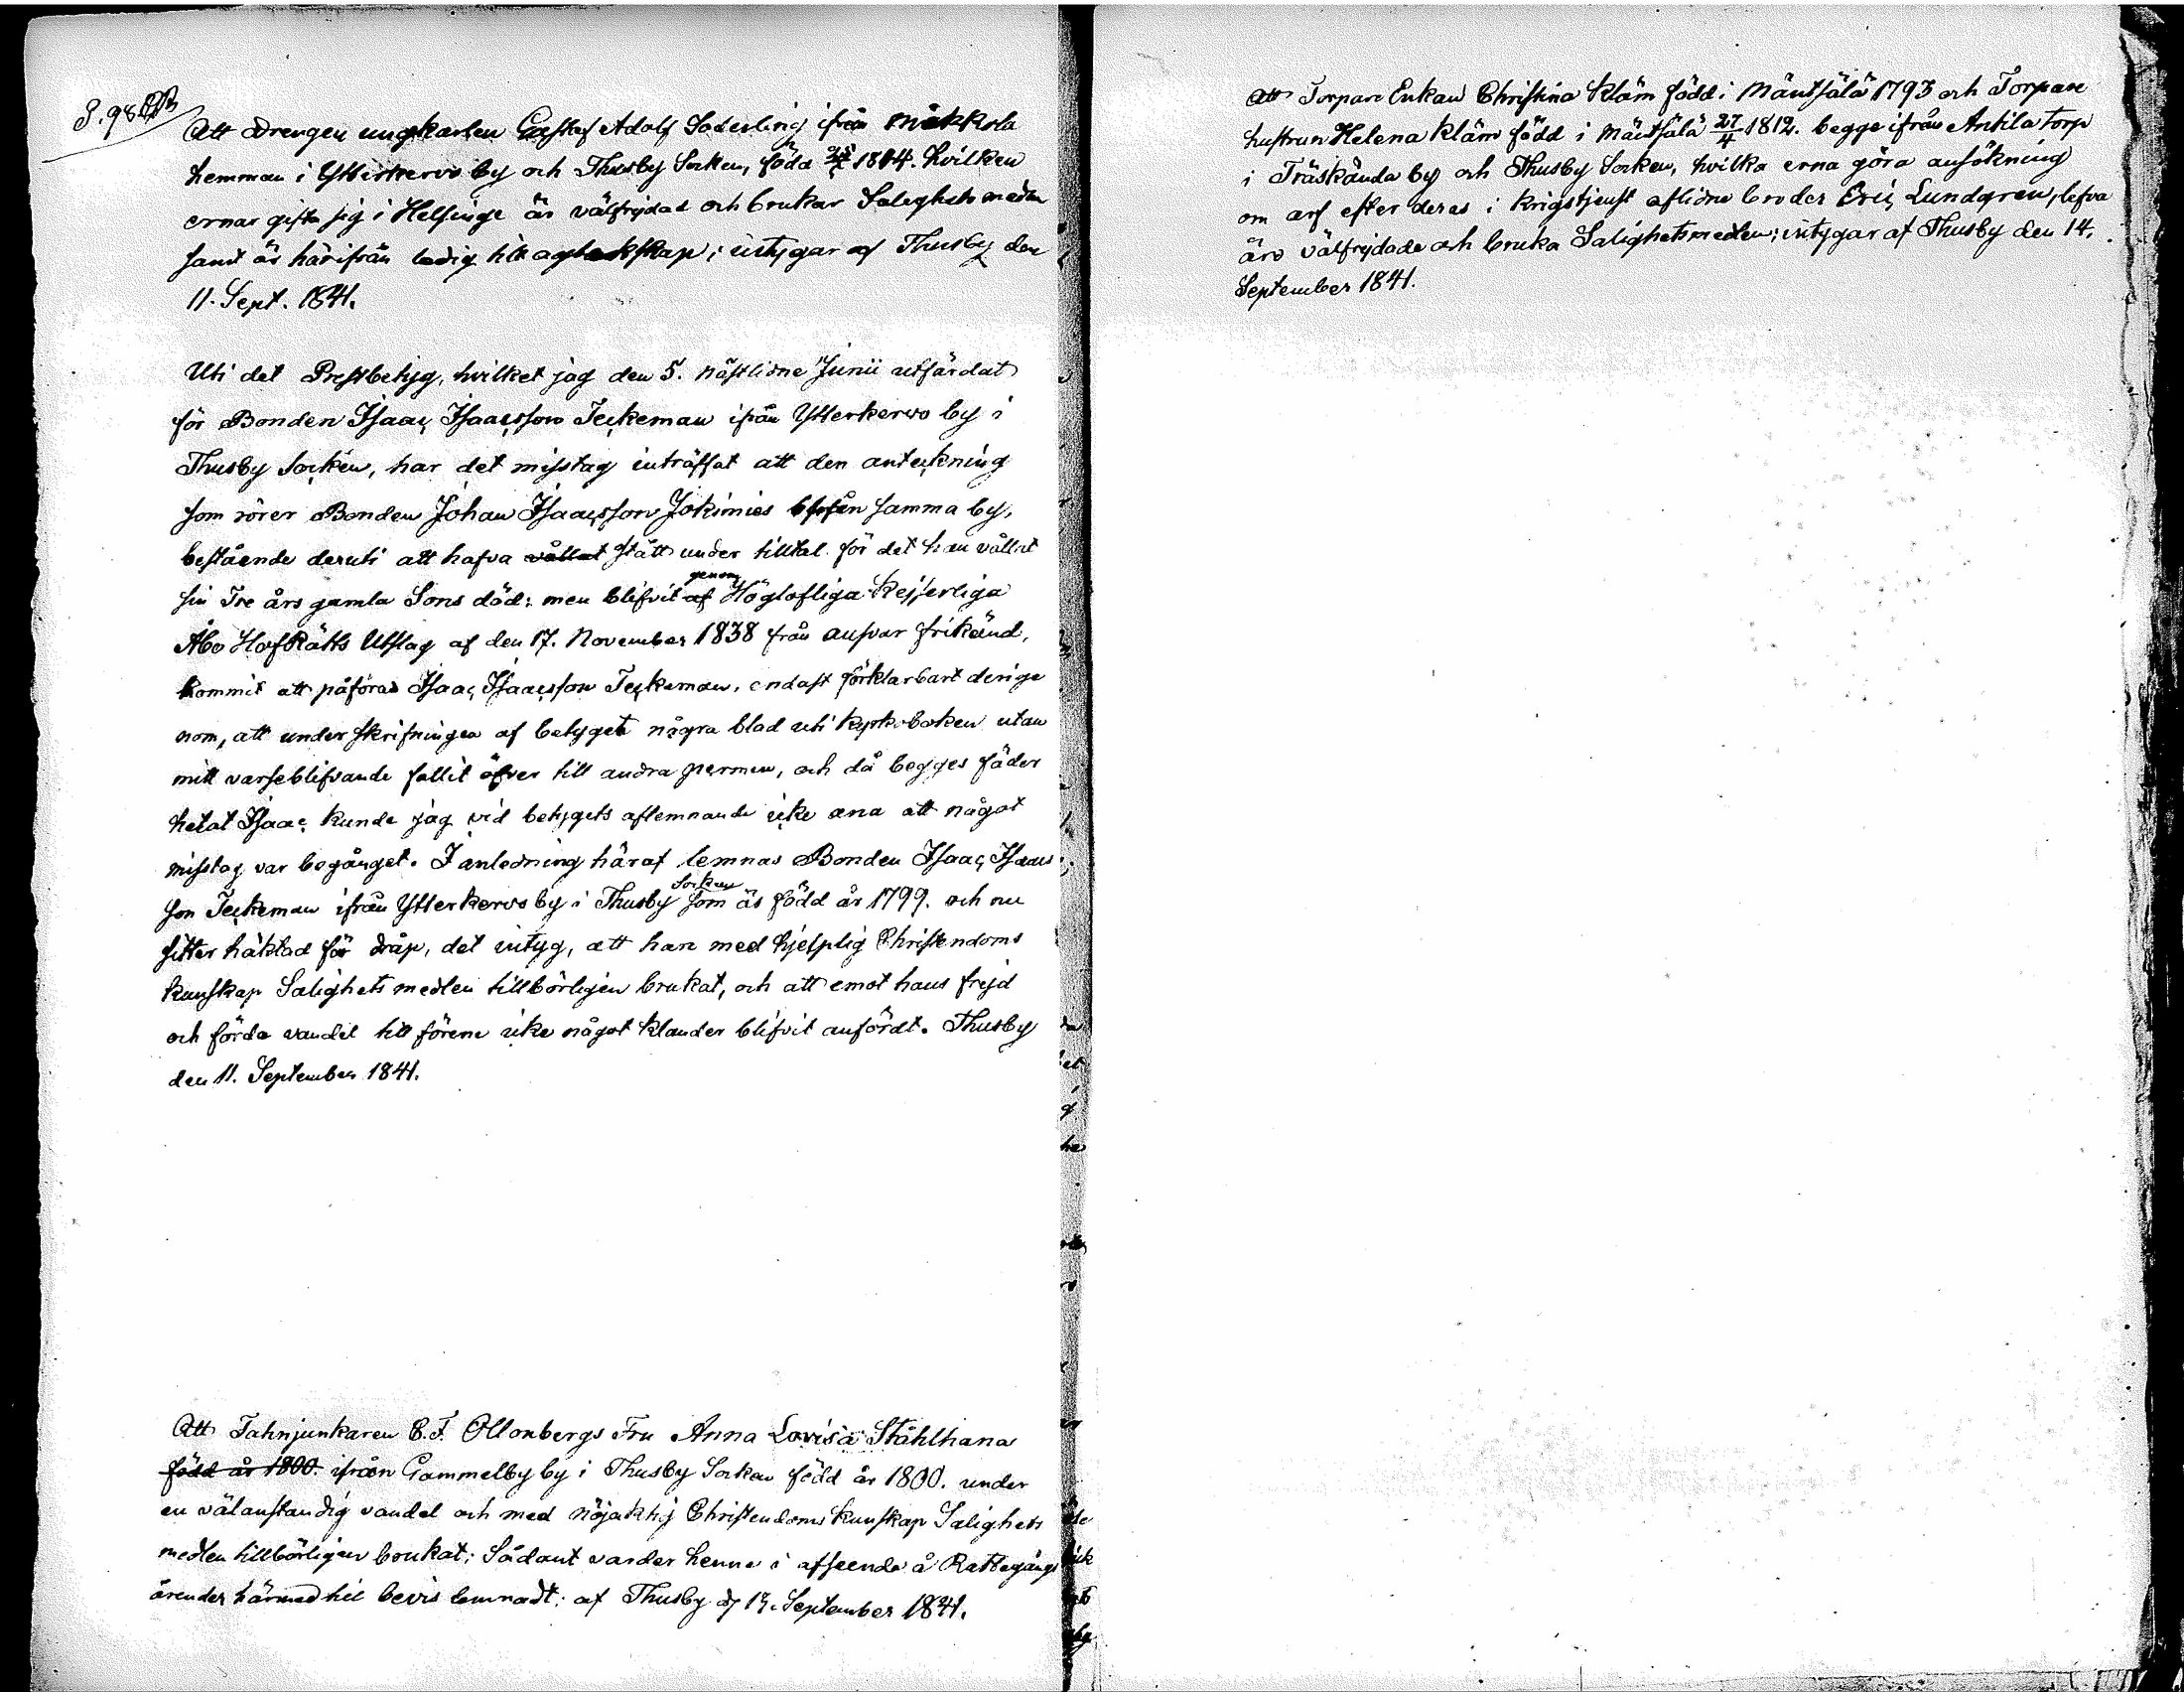 S. 98.
Att Drengen ungkarlen Gustaf Adolf Söderling ifrån Måkkola
hemman i Ytterkervo by och Thusby Socken, född 1814. hvilken
ernar gifta sig i Helsinge är välfrejdad och brukar Salighets medlen
samt är härifrån ledig till agtenskap; intygar af Thusby den
11. Sept. 1841.
Uti det Prestbetyg, hvilket jag den 5. nästlidne Junii utfärdat
för Bonden Isaac Isaacsson Teckeman ifrån Ytterkervo by i
Thusby Socken, har det misstag inträffat att den anteckning
som rörer Bonden Johan Isaacsson Jokimies ifrån samma by,
bestående deruti att hafva vållat stått under tilltal för det han vållat
sin Tre års gamla Sons död: men blifvit af genom Höglofliga Kejserliga
Åbo HofRätts Utslag af den 17. November 1838 från ansvar frikänd,
kommit att påföras Isaac Isaacsson Teckeman, endast förklarbart derige
nom, att under skrifningen af betyget några blad uti kyrkoboken utan
mitt varseblifvande fallit öfver till andra permen, och då begges fäder
hetat Isaac kunde jag vid betygets aflemnande icke ana att något
misstag var begånget. I anledning häraf lemnas Bonden Isaac Isaacs
son Teckeman ifrån Ytterkervo by i Thusby Socken som är född år 1799. och nu
sitter häktad för dråp, det intyg, att han med hjelplig Christendoms
kunskap Salighets medlen tillbörligen brukat, och att emot hans frejd
och förda vandel till förene icke något klander blifvit anfördt. Thusby
den 11. September 1841.
Att Fahnjunkaren C. F. Ollonbergs Fru Anna Lovisa Ståhlhana
född år 1800. ifrån Gammelby by i Thusby Socken född år 1800. under
en välanständig vandel och med nöjaktig Christendoms kunskap Salighets
medlen tillbörligen brukat; Sådant varder henne i afseende å Rättegångs
ärender härmed till bevis lemnadt; af Thusby d. 13. September 1841.
Att Torpare Enkan Christina Kläm född i Mäntsälä 1793 och Torpare
hustrun Helena Kläm född i Mäntsälä 27/4 1812. begge ifrån Antila torp
i Träskända by och Thusby Socken, hvilka erna göra ansökning
om arf efter deras i krigstjenst aflidne broder Eric Lundgren, lefva
äro välfrejdade och bruka Salighetsmedlen; intygar af Thusby den 14.
September 1841.